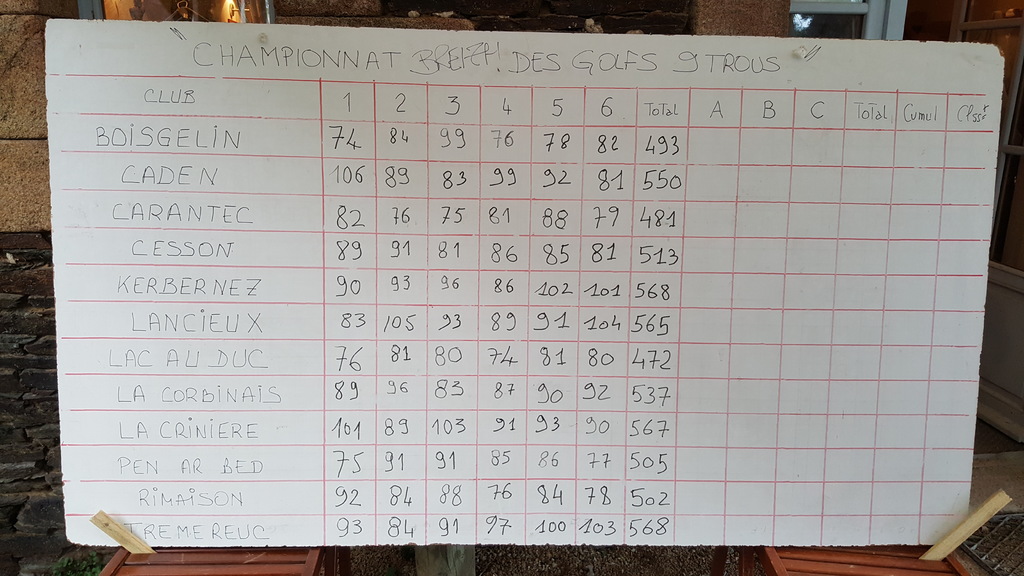 "CHAMPIONNAT BREIZH! DES GOLFS 9 TROUS"
CLUB 1 2 3 4 5 6 Total A B C Total Cumul Clsst
BOISGELIN 74 84 99 76 78 82 493
CADEN 106 89 83 99 92 81 550
CARANTEC 82 76 75 81 88 79 481
CESSON 89 91 81 86 85 81 513
KERBERNEZ 90 93 96 86 102 101 568
LANCIEUX 83 105 93 89 91 104 565
LAC AU DUC 76 81 80 74 81 80 472
LA CORBINAIS 89 96 83 87 90 92 537
LA CRINIERE 101 89 103 91 93 90 567
PEN AR BED 75 91 91 85 86 77 505
RIMAISON 92 84 88 76 84 78 502
TREMEREUC 93 84 91 97 100 103 568